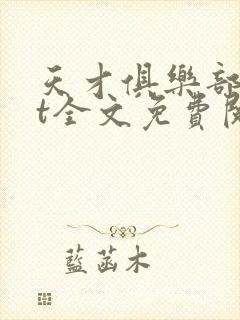 天才俱樂部
t全文免費閱
藍菡木